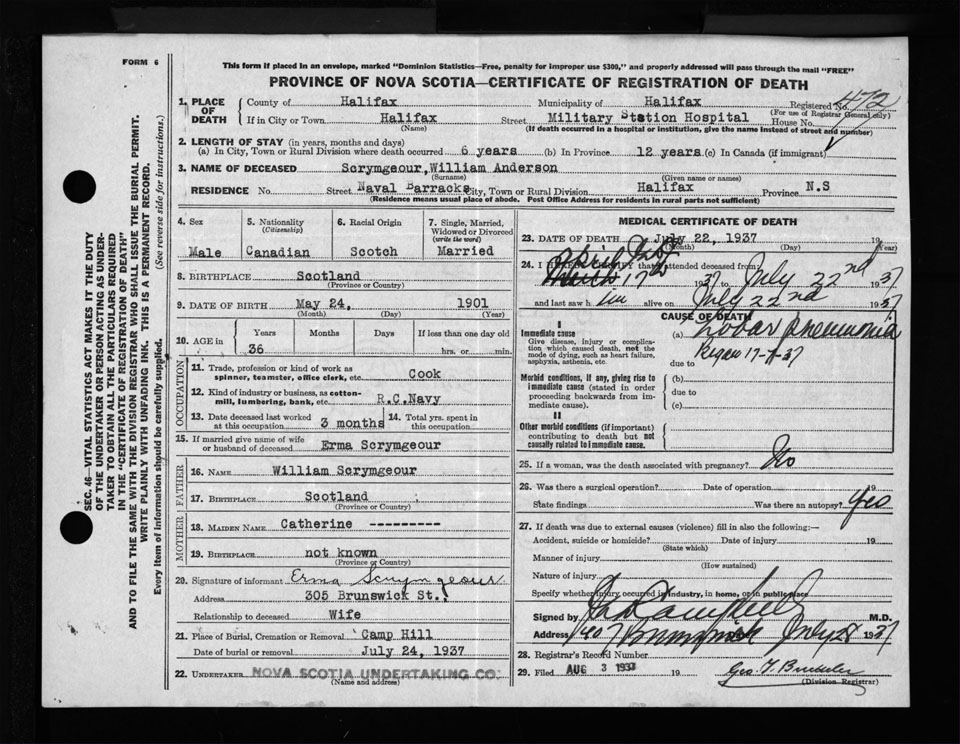 FORM 6
This form if placed in an envelope, marked "Dominion Statistics—Free, penalty for improper use $300," and properly addressed will pass through the mail "FREE"
PROVINCE OF NOVA SCOTIA—CERTIFICATE OF REGISTRATION OF DEATH
SEC. 46—VITAL STATISTICS ACT MAKES IT THE DUTY
OF THE UNDERTAKER OR PERSON ACTING AS UNDER-
TAKER TO OBTAIN ALL THE PARTICULARS REQUIRED
IN THE "CERTIFICATE OF REGISTRATION OF DEATH"
AND TO FILE THE SAME WITH THE DIVISION REGISTRAR WHO SHALL ISSUE THE BURIAL PERMIT.
WRITE PLAINLY WITH UNFADING INK. THIS IS A PERMANENT RECORD.
Every item of information should be carefully supplied. (See reverse side for instructions.)
1. PLACE OF DEATH County of Halifax Municipality of Halifax Registered No. 472
(For use of Registrar General only)
If in City or Town Halifax Street Military Station Hospital House No.
(Name) (If death occurred in a hospital or institution, give the name instead of street and number)
2. LENGTH OF STAY (in years, months and days)
(a) In City, Town or Rural Division where death occurred 6 years (b) In Province 12 years (c) In Canada (if immigrant)
3. NAME OF DECEASED Scrymgeour, William Anderson
(Surname) (Given name or names)
RESIDENCE No. Street Naval Barracks City, Town or Rural Division Halifax Province N.S
(Residence means usual place of abode. Post Office Address for residents in rural parts not sufficient)
4. Sex 5. Nationality (Citizenship) 6. Racial Origin 7. Single, Married, Widowed or Divorced (write the word)
Male Canadian Scotch Married
8. BIRTHPLACE Scotland
(Province or Country)
9. DATE OF BIRTH May 24, 1901
(Month) (Day) (Year)
10. AGE in Years Months Days If less than one day old
36 hrs. or min.
OCCUPATION
11. Trade, profession or kind of work as spinner, teamster, office clerk, etc. Cook
12. Kind of industry or business, as cotton-mill, lumbering, bank, etc. R.C.Navy
13. Date deceased last worked at this occupation 3 months 14. Total yrs. spent in this occupation
15. If married give name of wife or husband of deceased Erma Scrymgeour
FATHER
16. NAME William Scrymgeour
17. BIRTHPLACE Scotland
(Province or Country)
MOTHER
18. MAIDEN NAME Catherine ----------
19. BIRTHPLACE not known
(Province or Country)
20. Signature of informant Erma Scrymgeour
Address 305 Brunswick St.
Relationship to deceased Wife
21. Place of Burial, Cremation or Removal Camp Hill
Date of burial or removal July 24, 1937
22. UNDERTAKER NOVA SCOTIA UNDERTAKING CO.
(Name and address)
MEDICAL CERTIFICATE OF DEATH
23. DATE OF DEATH July 22, 1937 19
(Month) (Day) (Year)
24. I HEREBY CERTIFY that I attended deceased from
17th 1937 to July 22nd 1937
and last saw him alive on July 22nd 1937
CAUSE OF DEATH
I
Immediate cause (a) Lobar Pneumonia
Give disease, injury or complication which caused death, not the mode of dying, such as heart failure, asphyxia, asthenia, etc.
due to
17-7-37
Morbid conditions, if any, giving rise to immediate cause (stated in order proceeding backwards from immediate cause).
(b)
due to
(c)
II
Other morbid conditions (if important) contributing to death but not causally related to immediate cause.
25. If a woman, was the death associated with pregnancy? No
26. Was there a surgical operation? Date of operation 19
State findings Was there an autopsy? Yes
27. If death was due to external causes (violence) fill in also the following:—
Accident, suicide or homicide? Date of injury 19
(State which)
Manner of injury
(How sustained)
Nature of injury
Specify whether injury occurred in industry, in home, or in public place
Signed by Campbell M.D.
Address Brunswick July 28 1937
28. Registrar's Record Number
29. Filed AUG 3 1937 19
(Division Registrar)